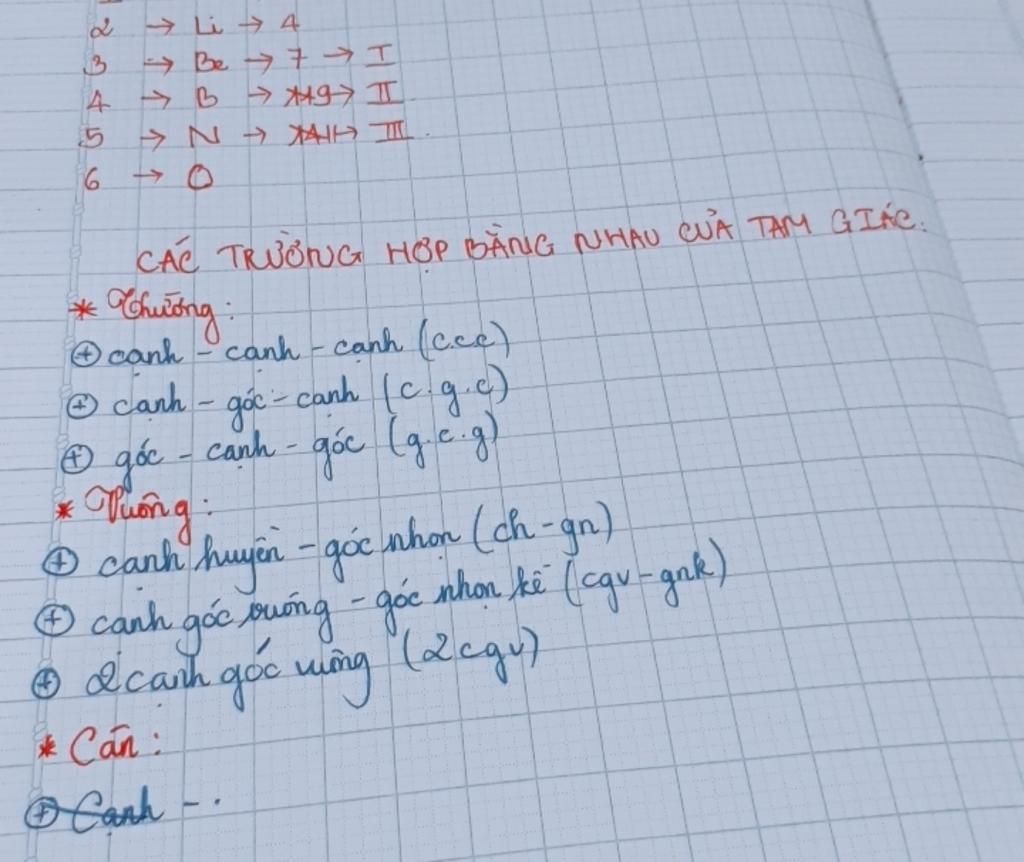 2 → Li → 4
3 → Be → 7 → I
4 → B → 9 → II
5 → N → 11 → III
6 → O
CÁC TRƯỜNG HỢP BẰNG NHAU CỦA TAM GIÁC.
* Thường:
+ cạnh - cạnh - cạnh (c.c.c)
+ cạnh - góc - cạnh (c.g.c)
+ góc - cạnh - góc (g.c.g)
* Vuông:
+ cạnh huyền - góc nhọn (ch - gn)
+ cạnh góc vuông - góc nhọn kề (cgv - gnk)
+ 2 cạnh góc vuông (2cgv)
* Cân:
+ Cạnh -.